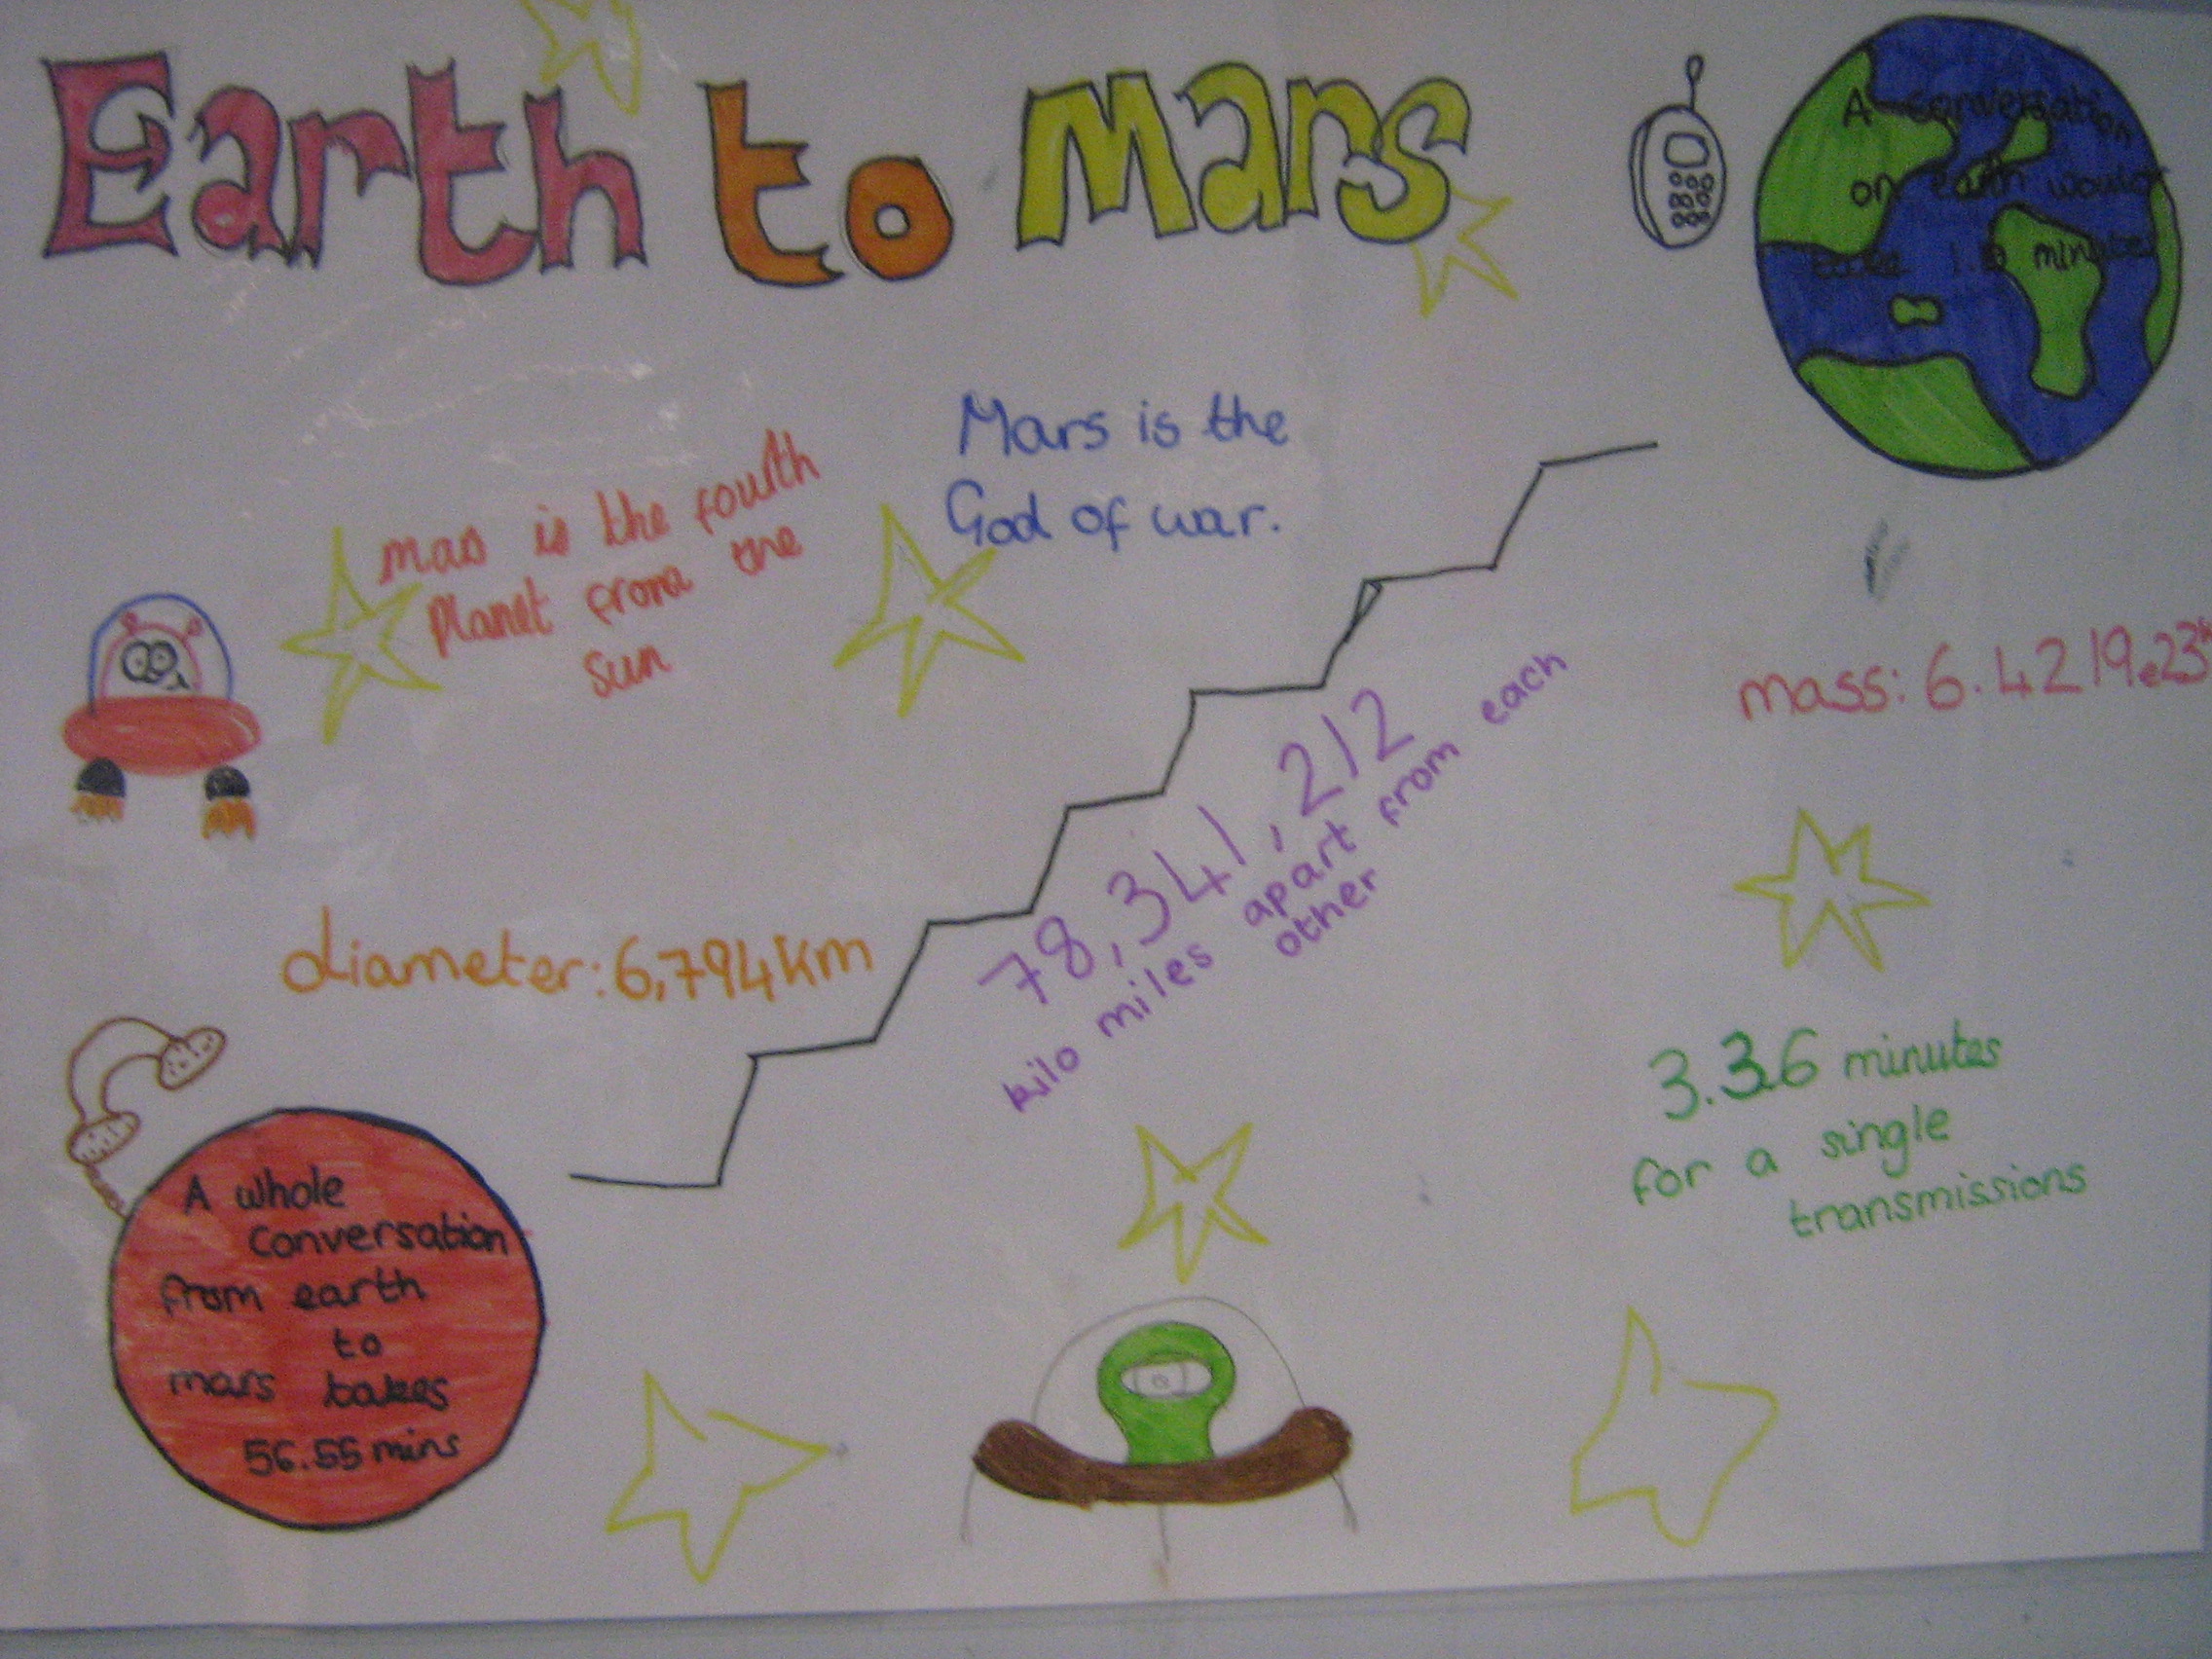 Earth to Mars
A conversation
on earth would
take 1. minutes
Mars is the
God of war.
mas is the fouth
planet from the
sun
mass: 6.4219e23
78,341,212
kilo miles apart from each
other
diameter: 6,794km
3.36 minutes
for a single
transmissions
A whole
conversation
from earth
to
mars takes
56.55 mins